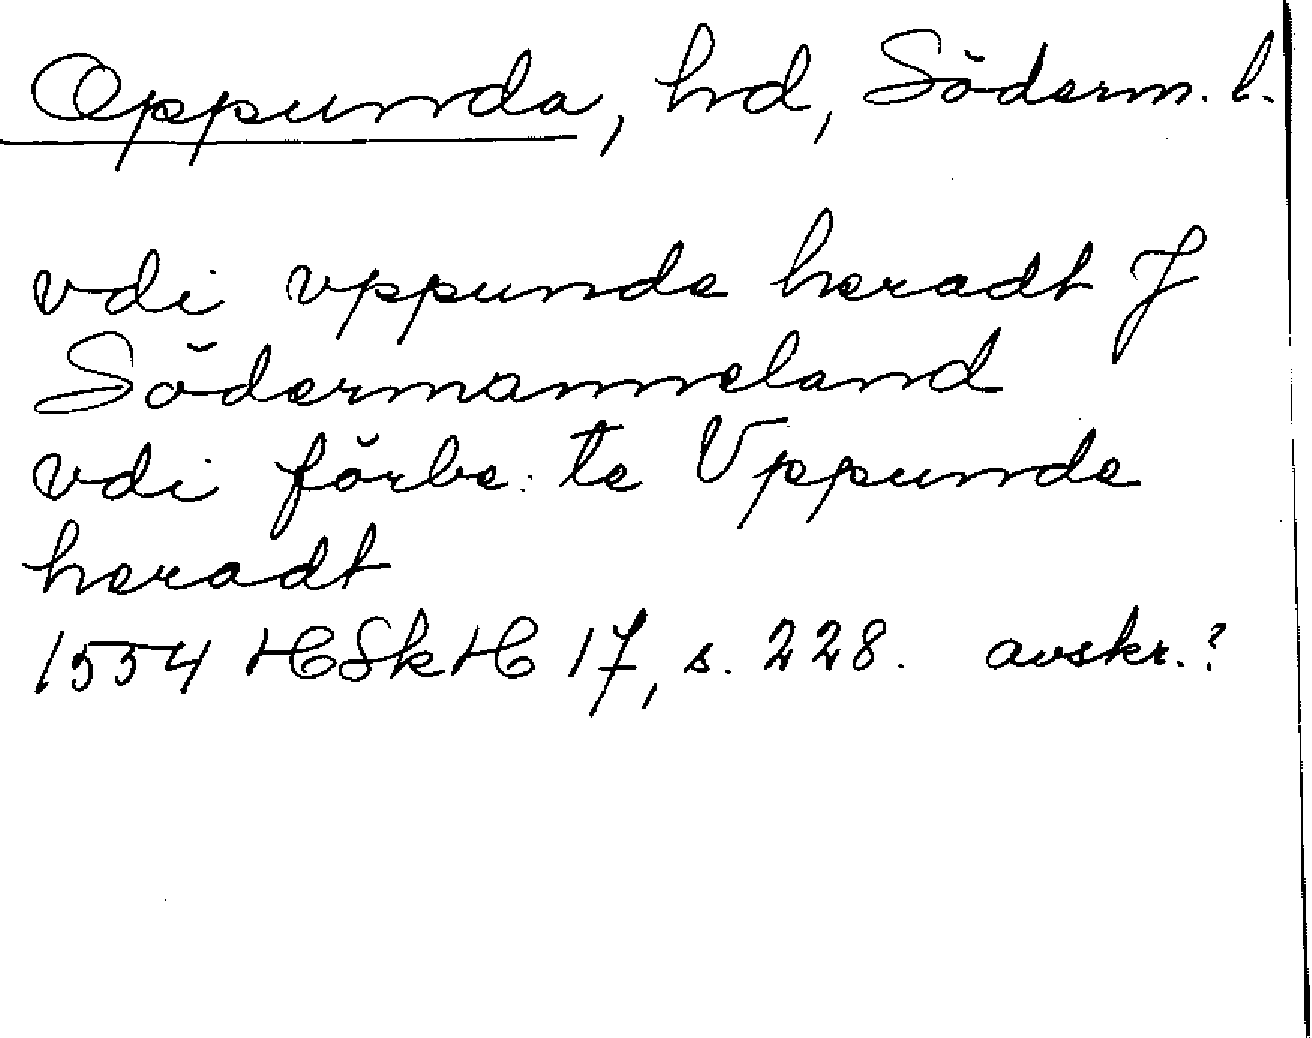 Oppunda, hd, Söderm. l.
vdi vppunde heradt J
Södermanneland
vdi förbe: te Vppunde
heradt
1554 HSkH 17, s. 228. avskr.?